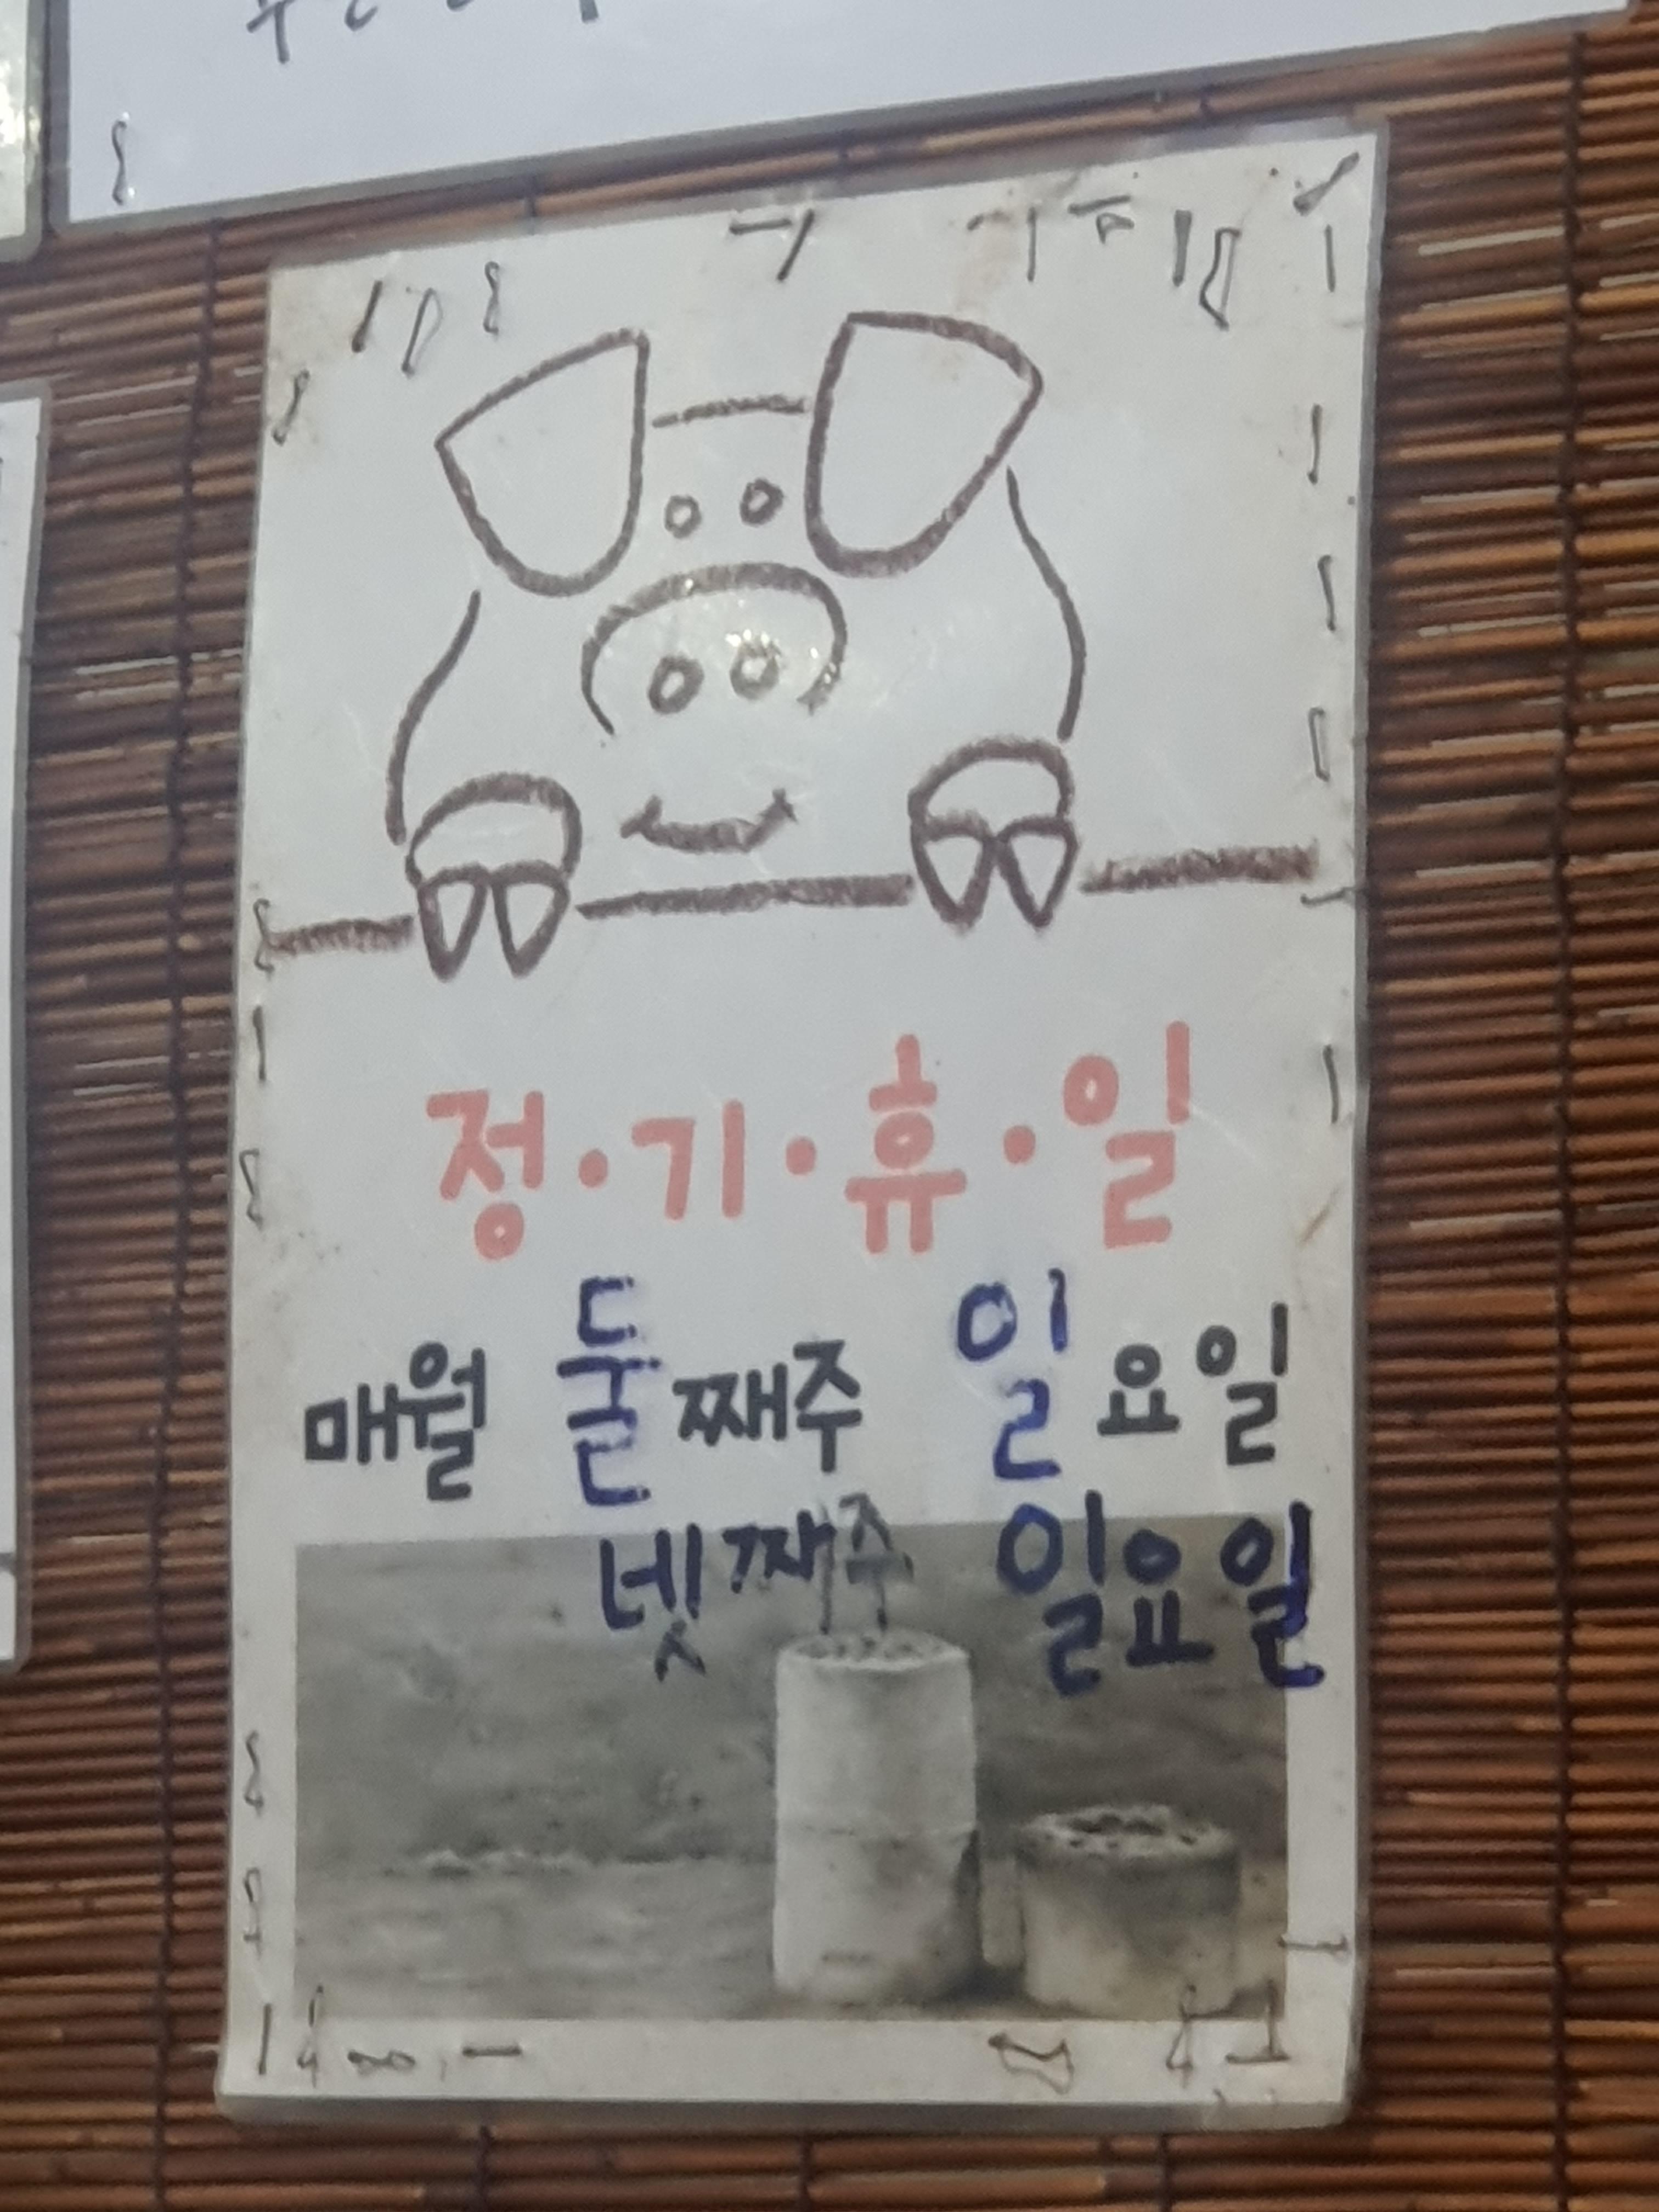 정·기·휴·일
매월 둘째주 일요일
넷째주 일요일